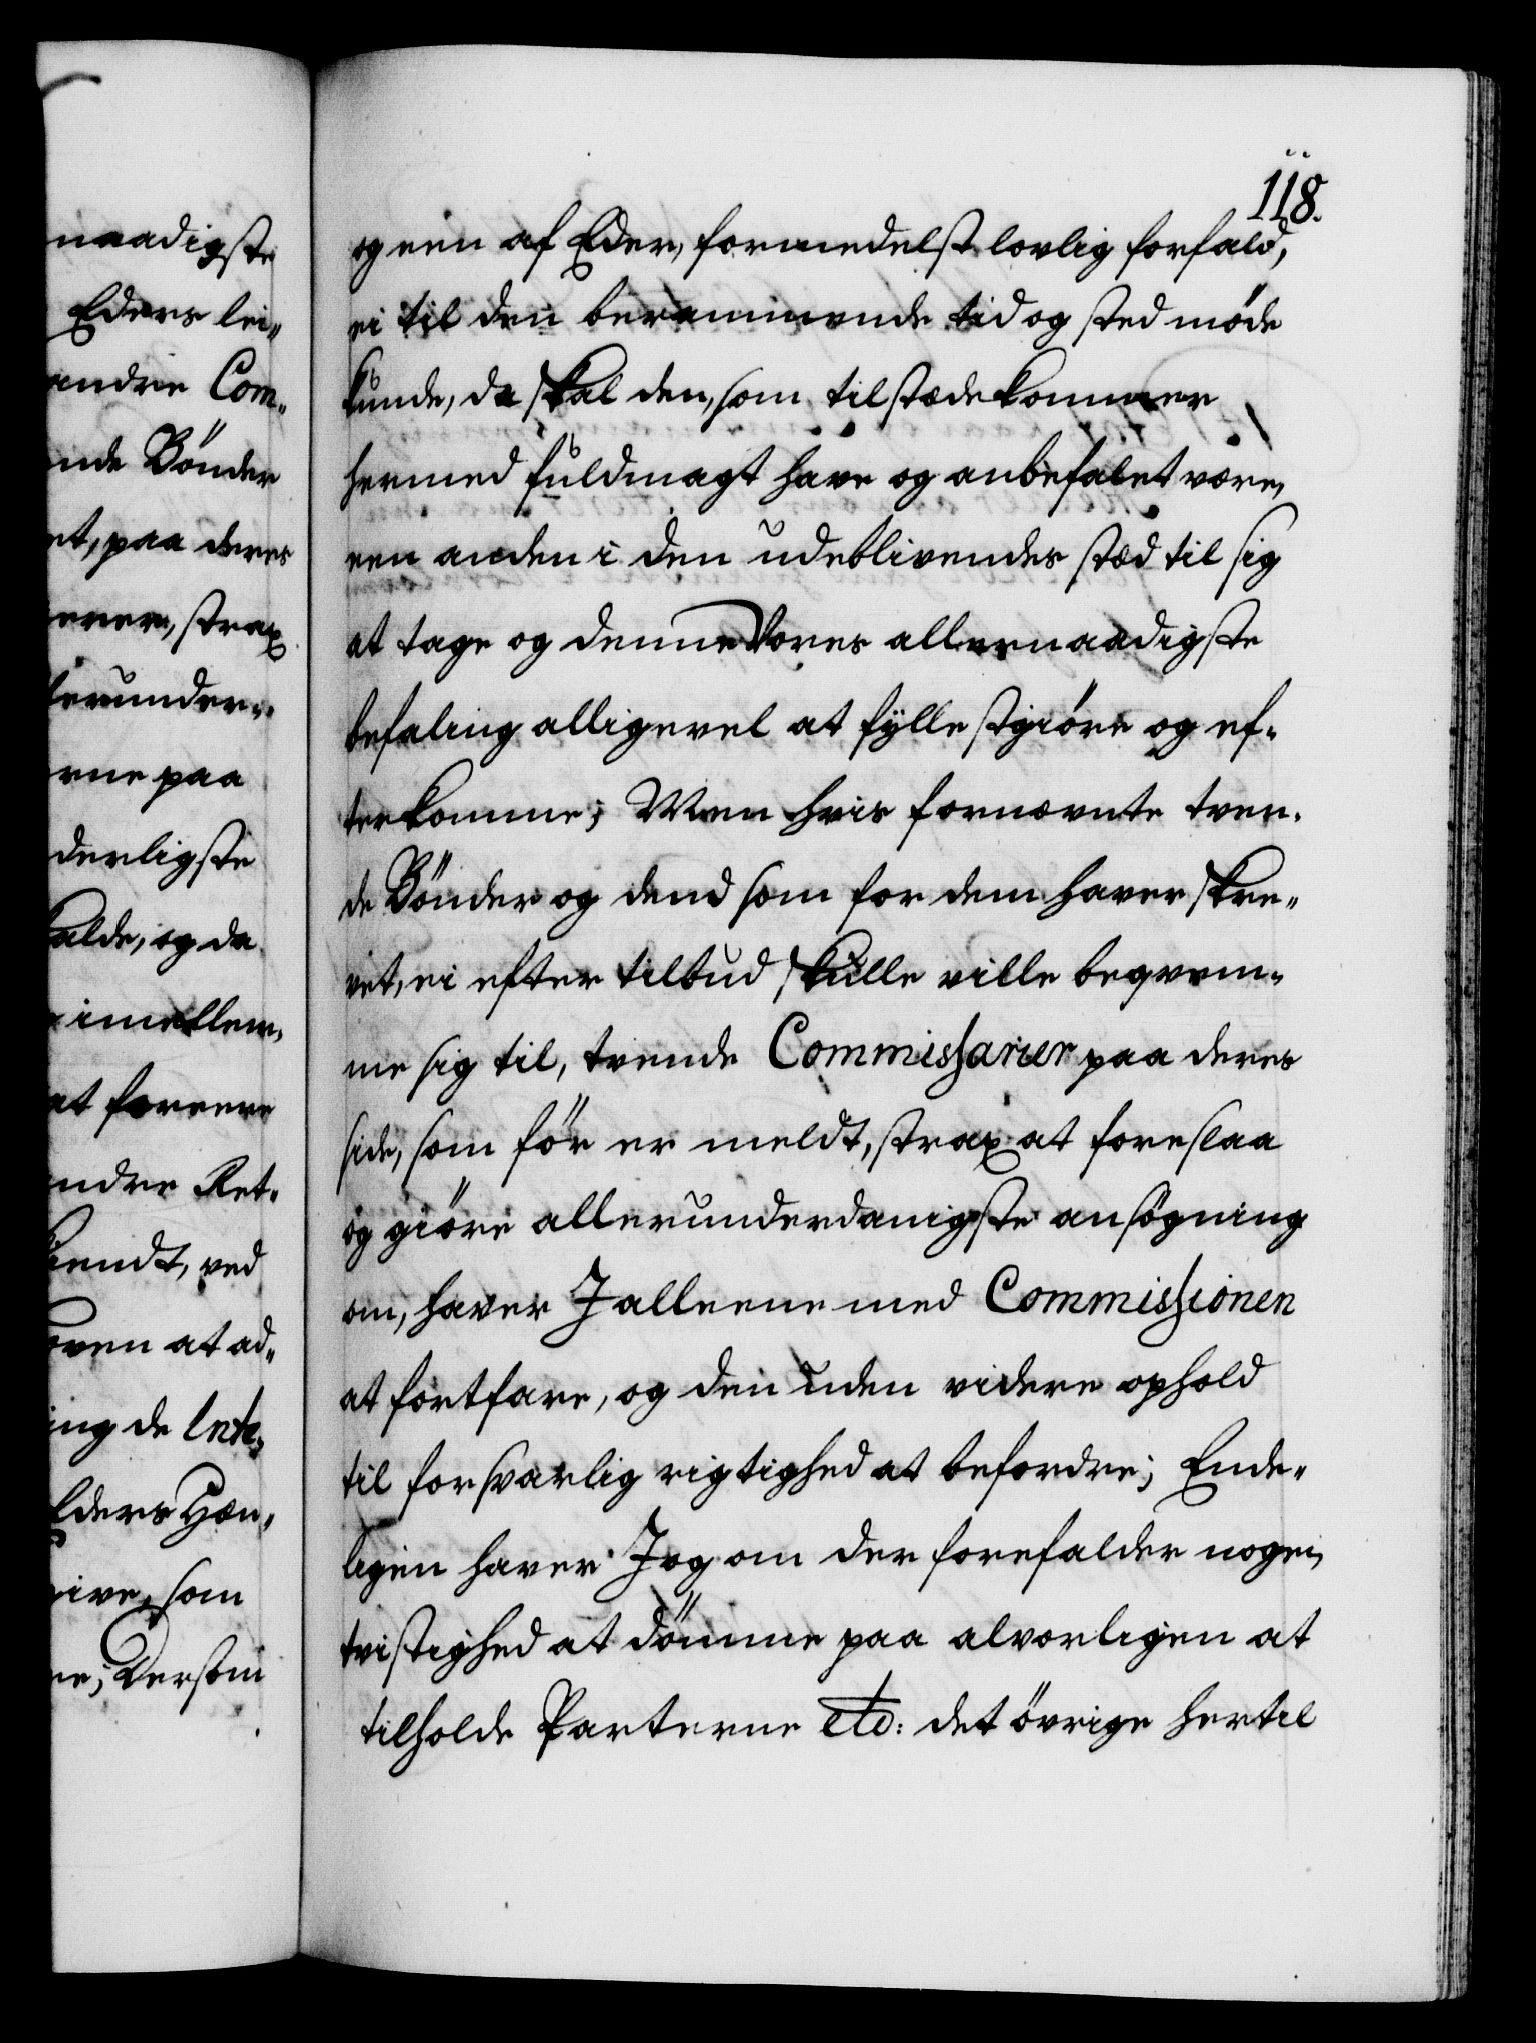 118.
naadigste
Eders lei¬
andre Com¬
Bönder
et, paa deres
strax
erunder¬
rne paa
derligste
og da
imellem,
at
andre Ret¬
kiendt, ved
at ad¬
ing de Inte¬
Eders Hæn¬
give, som
Dersom
og een af Eder, formedelst lovlig forfald,
ei til den berammende tid og sted möde
kunde, da skal den, som tilstædekommer
hermed fuldmagt have og anbefalet være,
een anden i den udeblivendes stæd til sig
at tage og denne Vores allernaadigste
befaling alligevel at fyllestgiöre og ef¬
terkomme; Men hvis fornævnte tven¬
de Bönder og dend som for dem haver skre¬
vet, ei efter tilbud skulle ville beqvem¬
me sig til, tvende Commissarier paa deres
side, som för er meldt, strax at foreslaa
og giöre allerunderdanigste ansögning
om, haver I alleene med Commissionen
at fortfare, og den uden videre ophold
til forsvarlig rigtighed at befordre; Ende¬
ligen haver I og om der forefalder nogen
tvistighed at dömme paa alvorligen at
tilholde Parterne etc: det övrige hertil